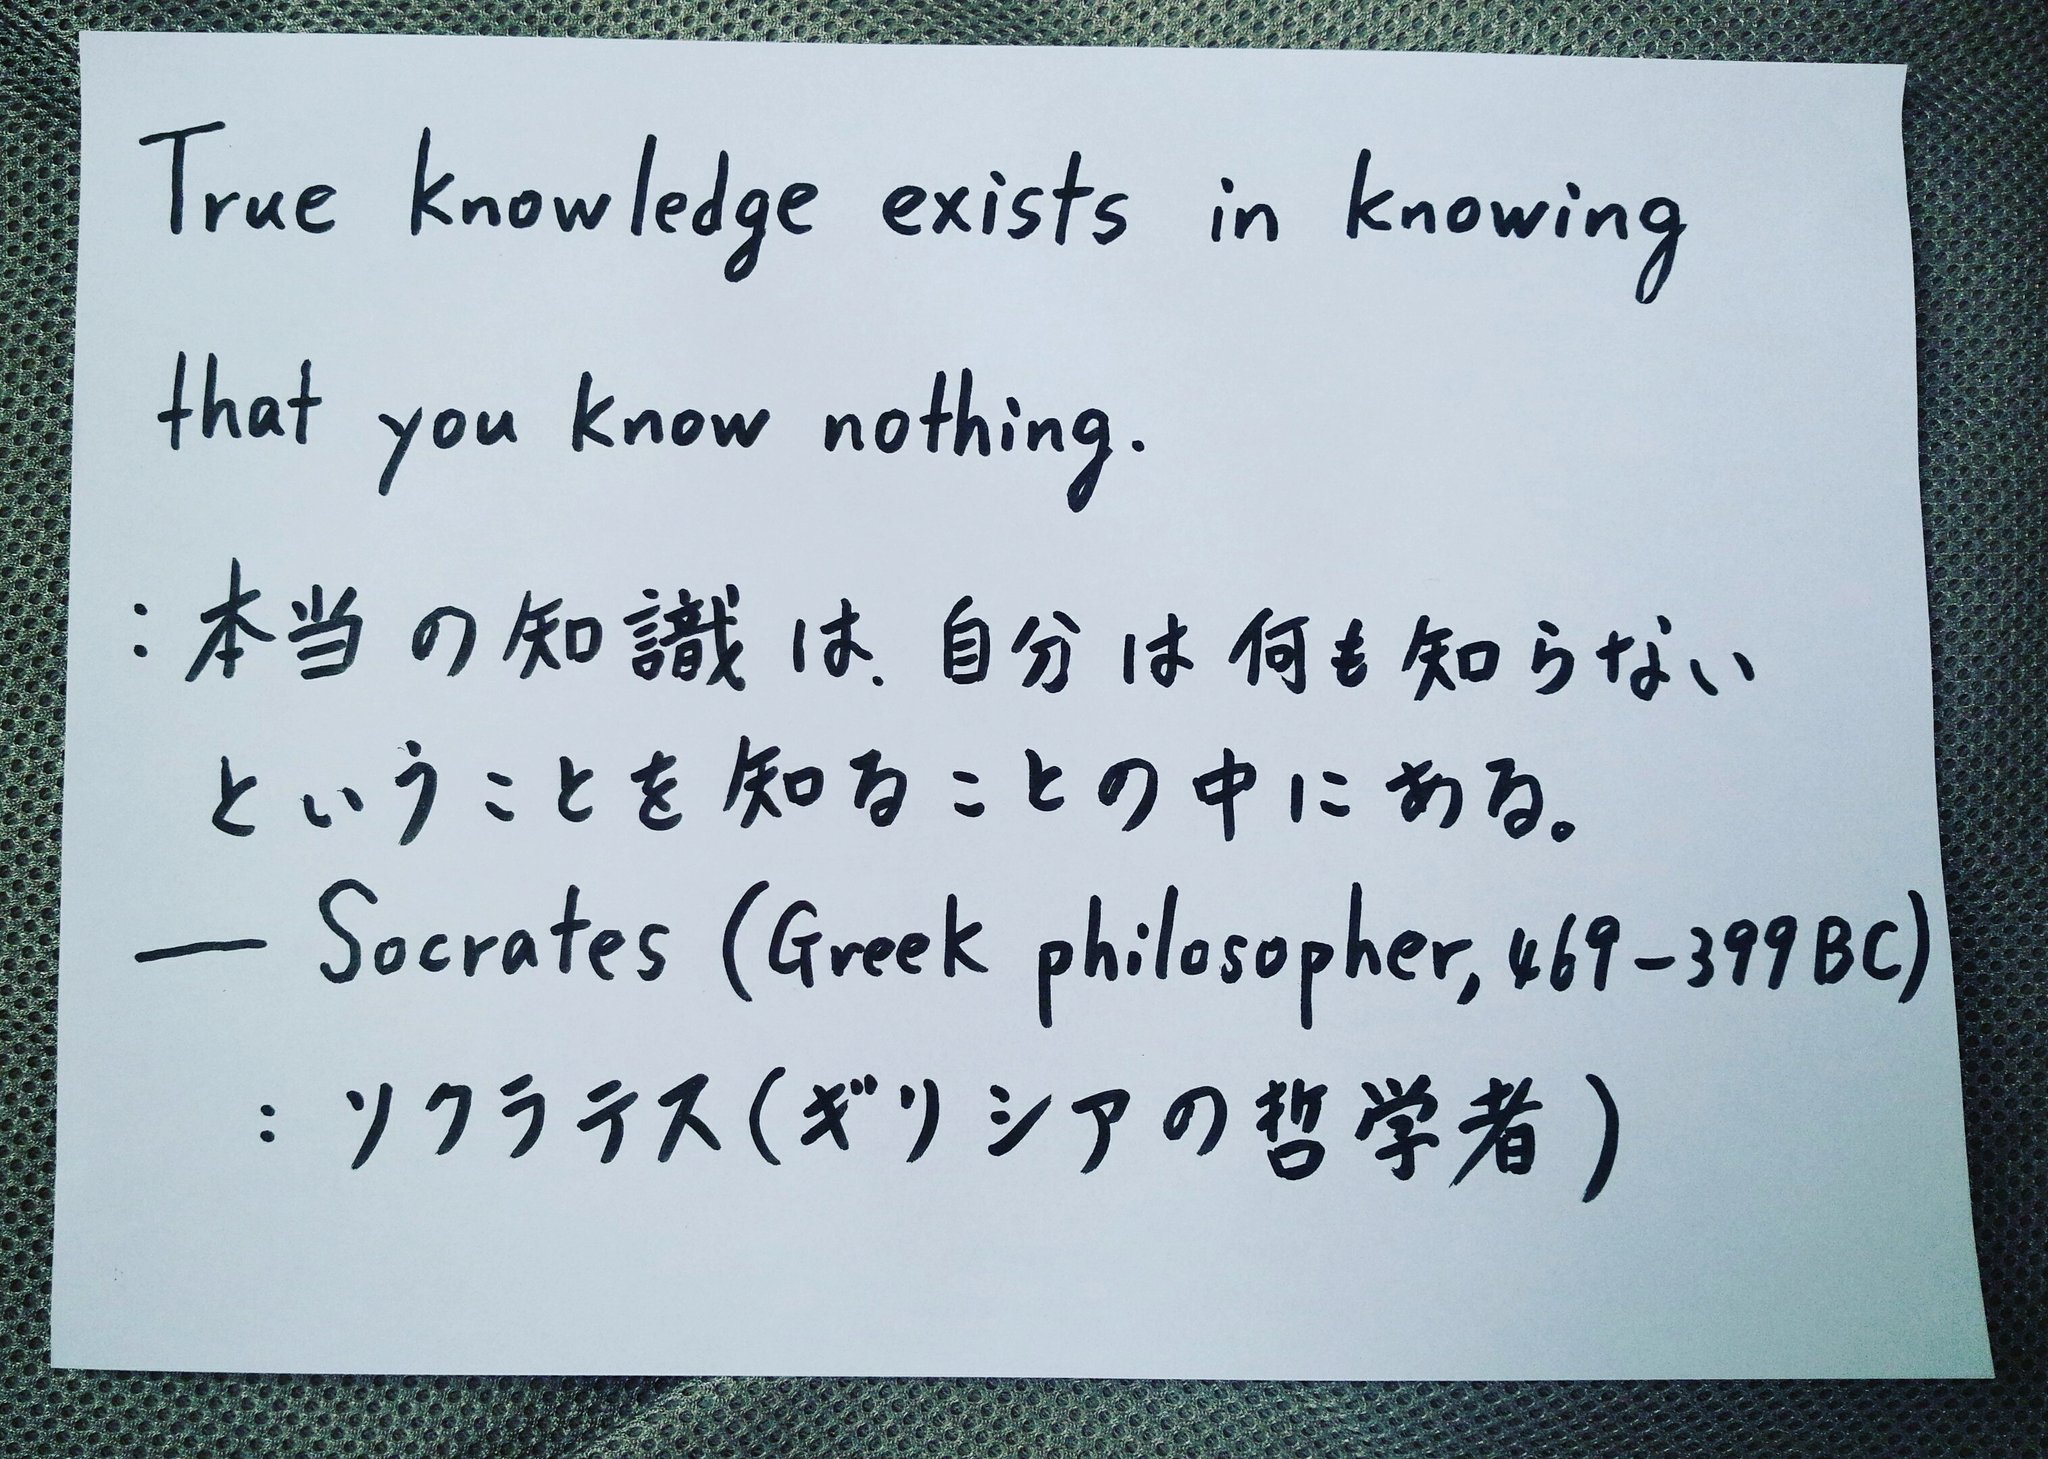 True knowledge exists in knowing
that you know nothing.
:本当の知識は、自分は何も知らない
ということを知ることの中にある。
— Socrates (Greek philosopher, 469-399BC)
:ソクラテス(ギリシアの哲学者)